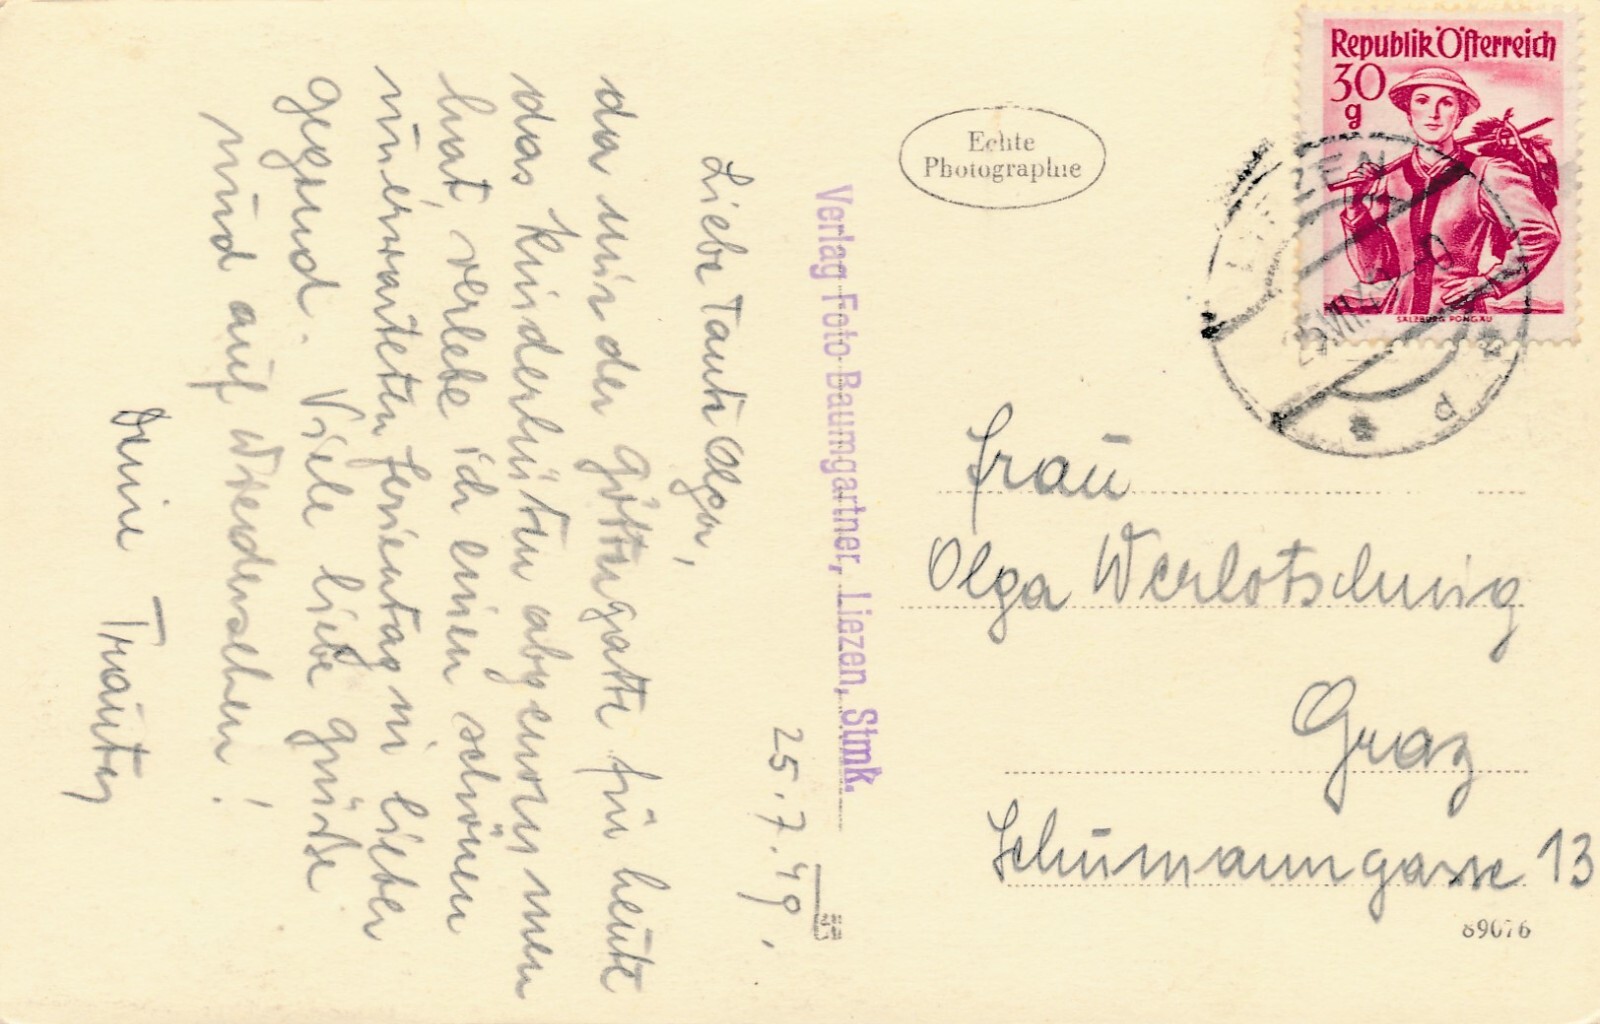 25.7.49.
Liebe Tante Olga,
da mir der Göttergatte für heute
das Kinderhüten abgenommen
hat, verlebe ich einen schönen
unerwarteten Ferientag in lieber
Gegend. Viele liebe Grüße
und auf Wiedersehen!
Deine Trautey
Verlag Foto-Baumgartner, Liezen, Stmk.
Echte
Photographie
Republik Österreich
30
g
SALZBURG PONGAU
LIEZEN
25.VII.49
Frau
Olga Werlotschnig
Graz
Schumanngasse 13
89076